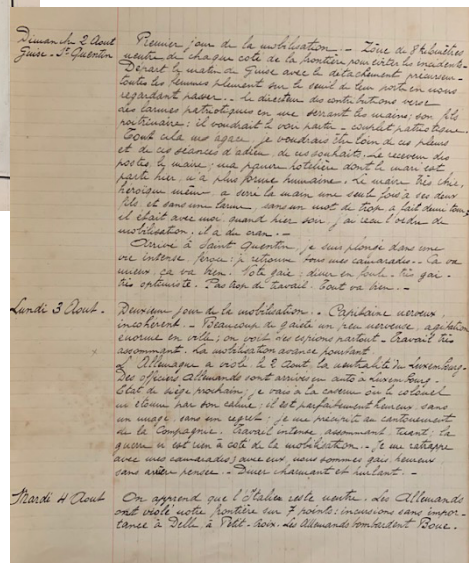 Dimanche 2 Aout
Guise - St Quentin
Premier jour de la mobilisation. - Zône de 8 kilomètres
neutre de chaque coté de la frontière pour éviter les incidents.
Départ le matin de Guise avec le détachement précurseur.
toutes les femmes pleurent sur le seuil de leur porte en nous
regardant passer. - le directeur des contributions verse
des larmes patriotiques en me serrant les mains; son fils
poitrinaire; il voudrait le voir partir - couplet patriotique.
Tout cela m'agace, je voudrais être loin de ces pleurs
et de ces séances d'adieu, de ces souhaits. Le receveur des
postes, le maire, ma hotelière dont le mari est
parti hier, n'a plus forme humaine. Le maire très chic,
héroïque même, a serré la main une seule fois à ses deux
fils, et sans un larme, sans un mot de trop a fait demi tour,
il était avec moi, quand hier soir, j'ai reçu l'ordre de
mobilisation, il a du cran. -
Arrivé à Saint Quentin, je suis plongé dans une
vie intense. je retrouve tous mes camarades. Ca va
mieux, ça va bien. gaie; diner en foule très gai -
très optimiste. Pas trop de travail. Tout va bien. -
Lundi 3 Aout -
Deuxième jour de la mobilisation. - Capitaine nerveux,
incohérent. - Beaucoup de gaieté un peu nerveuse, agitation
énorme en ville; on voit des espions partout - travail très
assommant. La mobilisation avance pourtant.
L'Allemagne a violé le 2 Aout, la neutralité du Luxembourg.
Des officiers Allemands sont arrivés en auto à Luxembourg.
Etat de siège prochain; je vais à la caserne où le colonel
m'étonne par son calme; il est parfaitement heureux, sans
un nuage, sans un regret; je me du cantonnement
de la Compagnie. travail intense, assommant, tuant; la
guerre n'est rien à coté de la mobilisation. - Je me rattrape
avec mes camarades; avec eux, nous sommes gais, heureux,
sans arrière pensée. - Diner charmant et hurlant. -
Mardi 4 Aout
On apprend que l'Italie reste neutre. Les Allemands
ont violé notre frontière sur 7 points; incursions sans impor-
tance à Delle, à Petit-Croix. Les Allemands bombardent Bone.